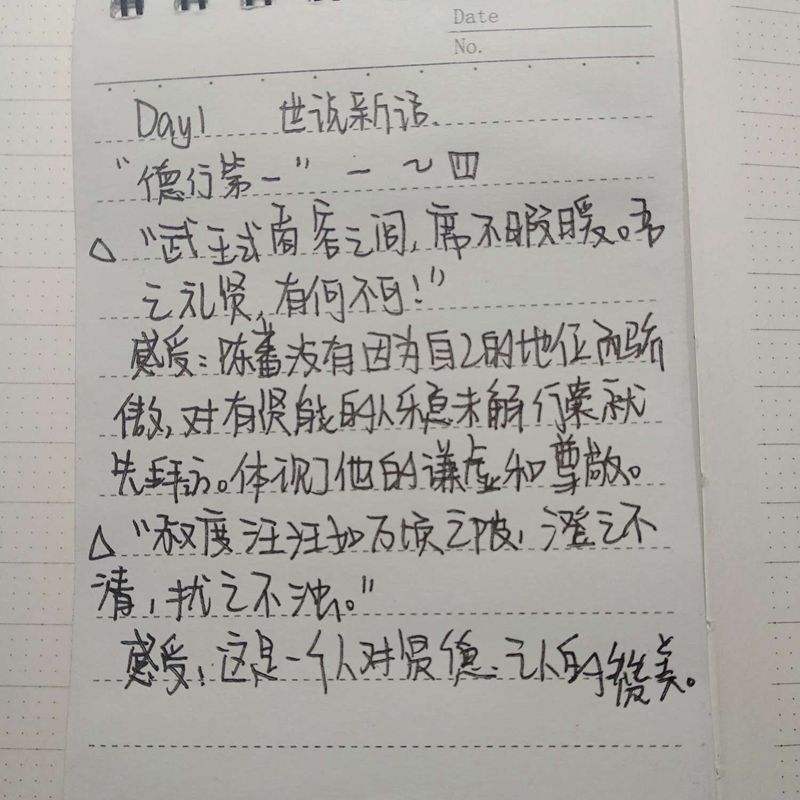 Date
No.
Day1 世说新话.
“德行第一” 一 ~ 四
△ “武王式商容之间, 席不暇暖。吾
之礼贤, 有何不可!”
感受: 陈蕃没有因为自己的地位而骄
傲, 对有贤能的人乐意未解行囊就
先拜访。体现了他的谦虚和尊敬。
△ “叔度汪汪如万顷之陂, 澄之不
清, 扰之不浊。”
感受: 这是一个人对贤德之人的赞美。